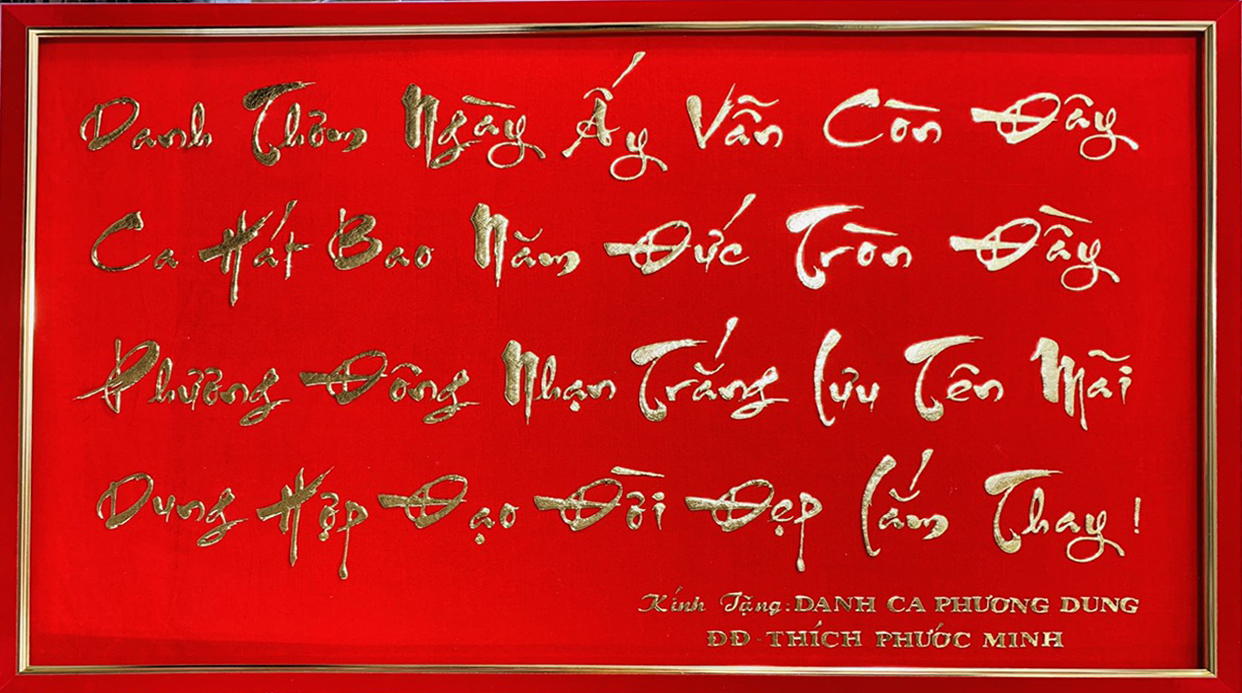 Danh Thơm Ngày Ấy Vẫn Còn Đây
Ca Hát Bao Năm Đức Tròn Đầy
Phương Đông Nhạn Trắng Lưu Tên Mãi
Dung Hợp Đạo Đời Đẹp Lắm Thay !
Kính Tặng: DANH CA PHƯƠNG DUNG
ĐĐ - THÍCH PHƯỚC MINH